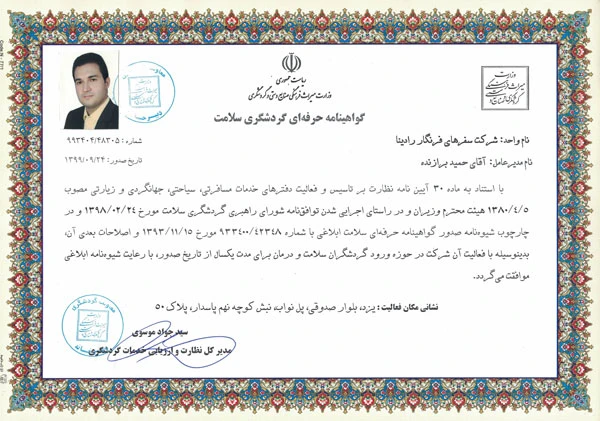 ریاست جمهوری
وزارت میراث فرهنگی، صنایع دستی و گردشگری
وزارت
میراث فرهنگی
گردشگری و صنایع دستی
گواهینامه حرفه‌ای گردشگری سلامت
نام واحد: شرکت سفرهای فرنگار رادینا
شماره: ۹۹۳۴۰۴/۴۸۳۰۵
نام مدیرعامل: آقای حمید برازنده
تاریخ صدور: ۱۳۹۹/۰۹/۲۴
با استناد به ماده ۳۰ آیین نامه نظارت بر تاسیس و فعالیت دفترهای خدمات مسافرتی، سیاحتی، جهانگردی و زیارتی مصوب
۱۳۸۰/۴/۵ هیئت محترم وزیران و در راستای اجرایی شدن توافق‌نامه شورای راهبری گردشگری سلامت مورخ ۱۳۹۸/۰۲/۲۴ و در
چارچوب شیوه‌نامه صدور گواهینامه حرفه‌ای سلامت ابلاغی با شماره ۹۳۳۴۰۰/۴۲۳۴۸ مورخ ۱۳۹۳/۱۱/۱۵ و اصلاحات بعدی آن،
بدینوسیله با فعالیت آن شرکت در حوزه ورود گردشگران سلامت و درمان برای مدت یکسال از تاریخ صدور، با رعایت شیوه‌نامه ابلاغی
موافقت می‌گردد.
نشانی مکان فعالیت: یزد، بلوار صدوقی، پل نواب، نبش کوچه نهم پاسدار، پلاک ۵۰
سید جواد موسوی
مدیر کل نظارت و ارزیابی خدمات گردشگری
معاونت گردشگری